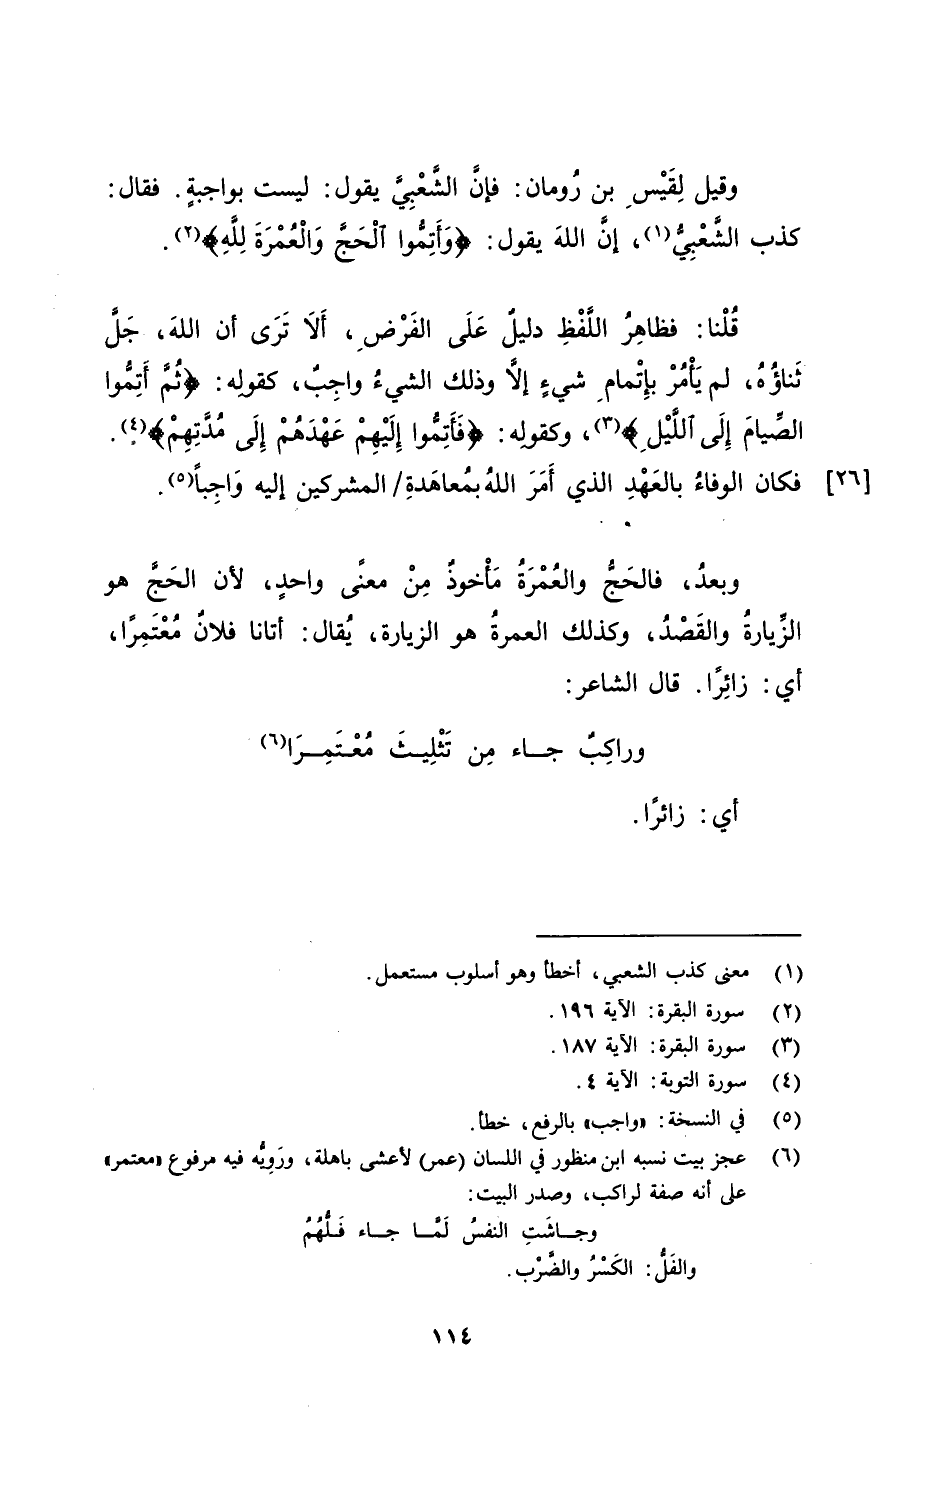 وقيل لِقَيْسِ بن رُومان: فإنَّ الشَّعْبِيَّ يقول: ليست بواجبةٍ. فقال:
كذب الشَّعْبِيُّ(١)، إنَّ اللهَ يقول: ﴿وَأَتِمُّوا ٱلْحَجَّ وَالْعُمْرَةَ لِلَّهِ﴾(٢).
قُلْنا: فظاهِرُ اللَّفْظِ دليلٌ عَلَى الفَرْضِ، أَلاَ تَرَى أن اللهَ، جَلَّ
ثَناؤُهُ، لم يَأْمُرْ بإِتْمامِ شيءٍ إلاَّ وذلك الشيءُ واجِبٌ، كقولِه: ﴿ثُمَّ أَتِمُّوا
الصِّيامَ إِلَى ٱللَّيْلِ﴾(٣)، وكقولِه: ﴿فَأَتِمُّوا إِلَيْهِمْ عَهْدَهُمْ إِلَى مُدَّتِهِمْ﴾(٤).
[٢٦] فكان الوفاءُ بالعَهْدِ الذي أَمَرَ اللهُ بمُعاهَدةِ/ المشركين إليه وَاجِباً(٥).
وبعدُ، فالحَجُّ والعُمْرَةُ مَأْخوذٌ مِنْ معنًى واحدٍ، لأن الحَجَّ هو
الزِّيارةُ والقَصْدُ، وكذلك العمرةُ هو الزيارة، يُقال: أتانا فلانٌ مُعْتَمِرًا،
أي: زائِرًا. قال الشاعر:
وراكِبٌ جـاء مِن تَثْلِيـثَ مُعْـتَمِـرَا(٦)
أي: زائرًا.
(١) معنى كذب الشعبي، أخطأ وهو أسلوب مستعمل.
(٢) سورة البقرة: الآية ١٩٦.
(٣) سورة البقرة: الآية ١٨٧.
(٤) سورة التوبة: الآية ٤.
(٥) في النسخة: «واجب» بالرفع، خطأ.
(٦) عجز بيت نسبه ابن منظور في اللسان (عمر) لأعشى باهلة، ورَوِيُّه فيه مرفوع «معتمر»
على أنه صفة لراكب، وصدر البيت:
وجـاشَتِ النفسُ لَمَّـا جـاء فَـلُّهُمُ
والفَلُّ: الكَسْرُ والضَّرْب.
١١٤